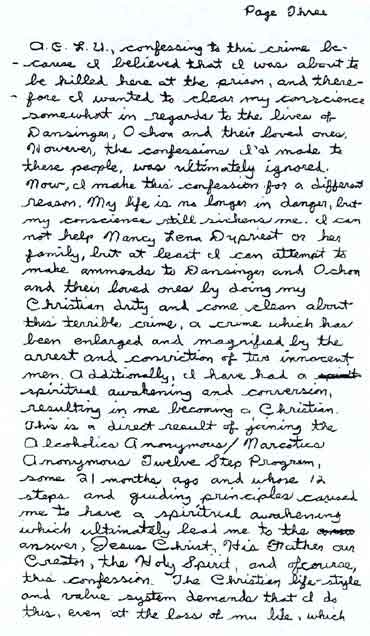 Page Three
A.C.L.U., confessing to this crime be-
- cause I believed that I was about to
be killed here at the prison, and there-
- fore I wanted to clear my conscience
somewhat in regards to the lives of
Danziger, Ochoa and their loved ones.
However, the confessions I'd made to
these people, was ultimately ignored.
Now, I make this confession for a different
reason. My life is no longer in danger, but
my conscience still sickens me. I can
not help Nancy Lena Dupriest or her
family, but at least I can attempt to
make ammends to Danzinger and Ochoa
and their loved ones by doing my
Christian duty and come clean about
this terrible crime, a crime which has
been enlarged and magnified by the
arrest and conviction of two innocent
men. Additionally, I have had a
spiritual awakening and conversion,
resulting in me becoming a Christian.
This is a direct result of joining the
Alcoholics Anonymous/Narcotics
Anonymous Twelve Step Program,
some 21 months ago and whose 12
steps and guiding principles caused
me to have a spiritual awakening
which ultimately lead me to the
answer, Jesus Christ, His Father our
Creator, the Holy Spirit, and ofcourse,
this confession. The Christian life-style
and value system demands that I do
this, even at the loss of my life, which